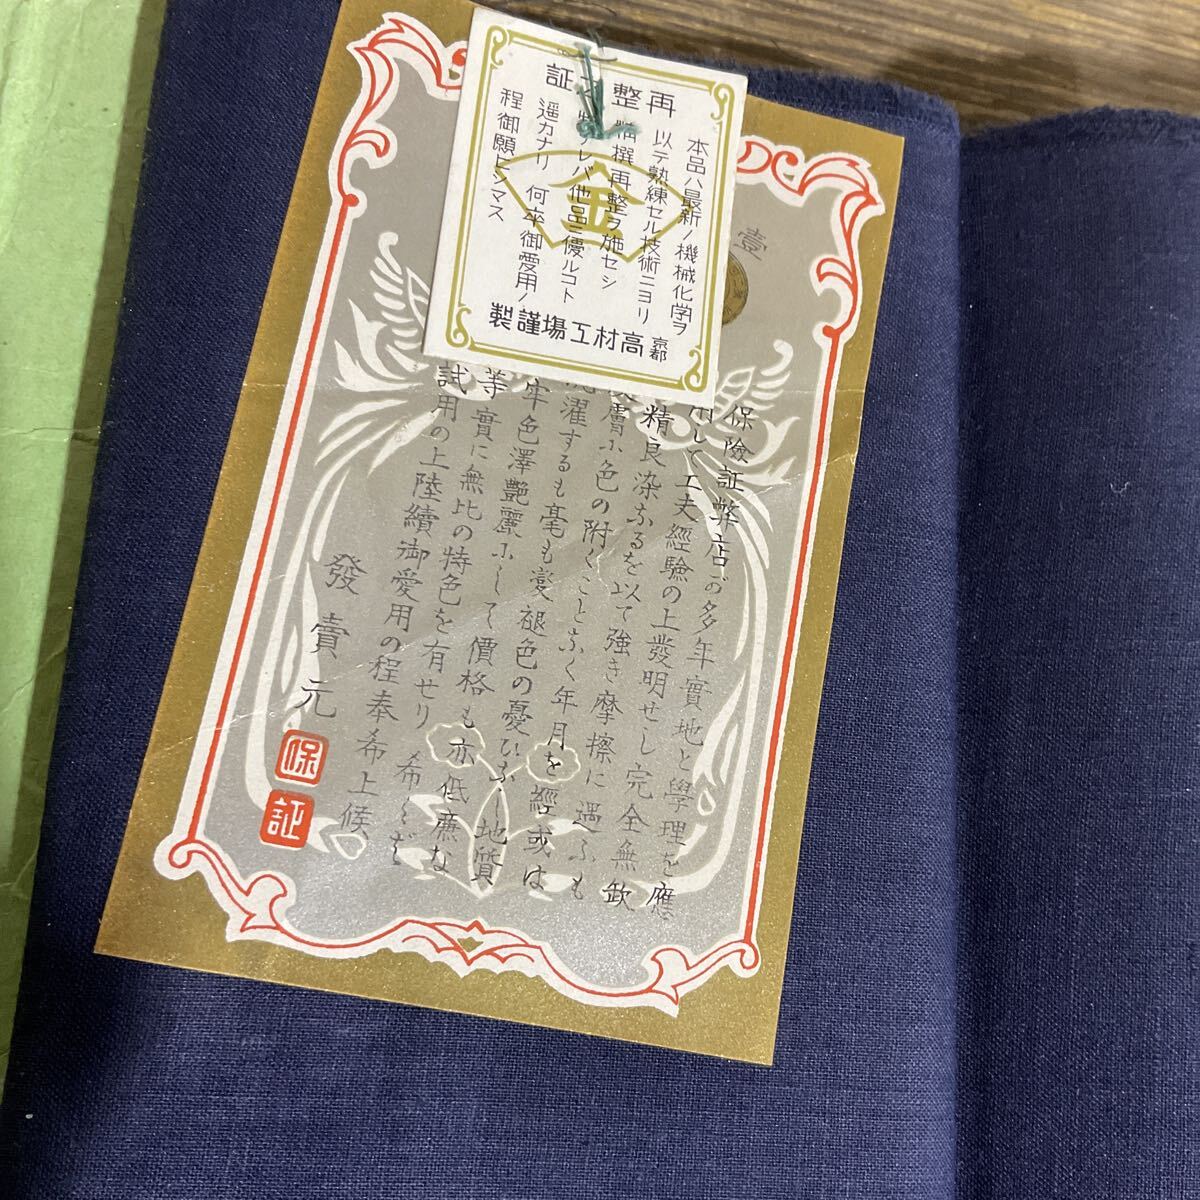 再整 証
本品ハ最新ノ機械化学ヲ
以テ熟練セル技術ニヨリ
精撰再整ヲ施セシ
レバ他品ニ優ルコト
遥カナリ 何卒御愛用ノ
程御願ヒシマス
京都 高材工場謹製
金
壹
保險証弊店の多年實地と學理を應
用して工夫經驗の上發明せし完全無欽
精良染ふるを以て強き摩擦に遇ふも
膚ふ色の附くことふく年月を經或は
洗濯するも毫も変褪色の憂ひふし地質
牢色澤艶麗ふして價格も亦低廉な
等實に無比の特色を有せり 希くば
試用の上陸續御愛用の程奉希上候
發賣元
保
証